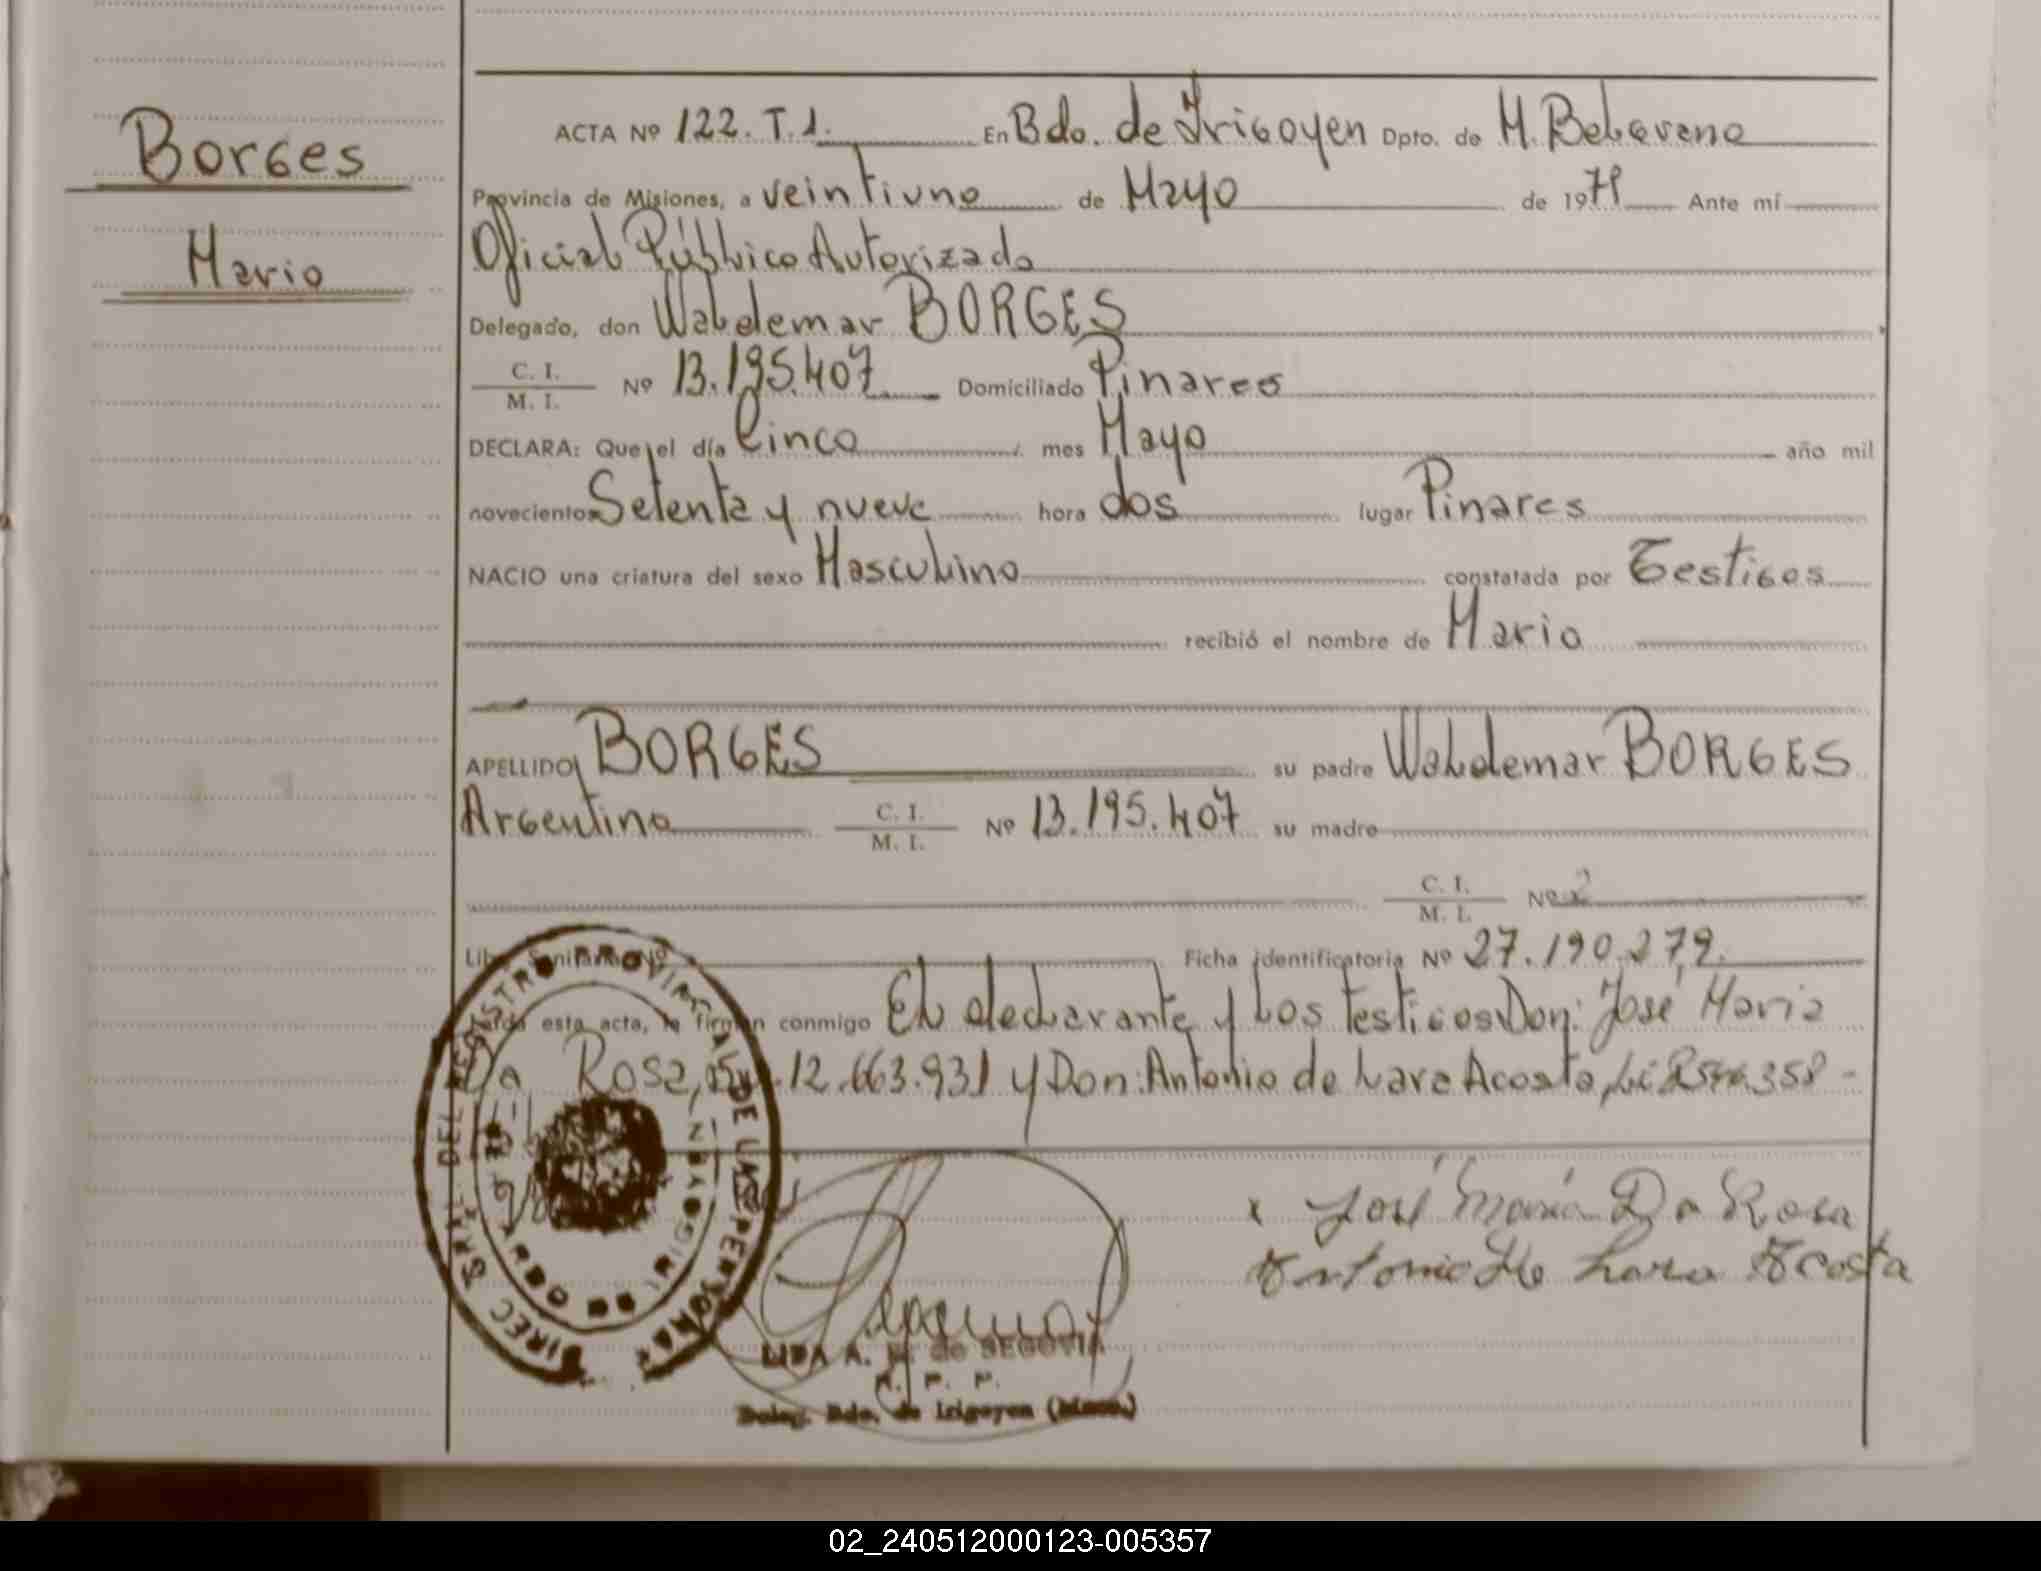 Borges
Mario
ACTA Nº 122. T.1. En Bdo. de Irigoyen Dpto. de M. Belgrano
Provincia de Misiones, a veintiuno de Mayo de 1979 Ante mí
Oficial Público Autorizado
Delegado, don Waldemar BORGES
C. I.
M. I. Nº 13.195.407 Domiciliado Pinares
DECLARA: Que el día Cinco mes Mayo año mil
novecientos Setenta y nueve hora dos lugar Pinares
NACIO una criatura del sexo Masculino constatada por Testigos
recibió el nombre de Mario
APELLIDO BORGES su padre Waldemar BORGES
Argentino C. I.
M. I. Nº 13.195.407 su madre
C. I.
M. I. Nº
Ficha identificatoria Nº 27.190.279.
esta acta, la firman conmigo El declarante y Los testigos Don: José Maria
Da Rosa, 12.663.931 y Don: Antonio de Lara Acosta,
José María Da Rosa
Antonio de Lara Acosta
LIDA A. de SEGOVIA
Deleg. Bdo. de Irigoyen (Mnes.)
02_240512000123-005357